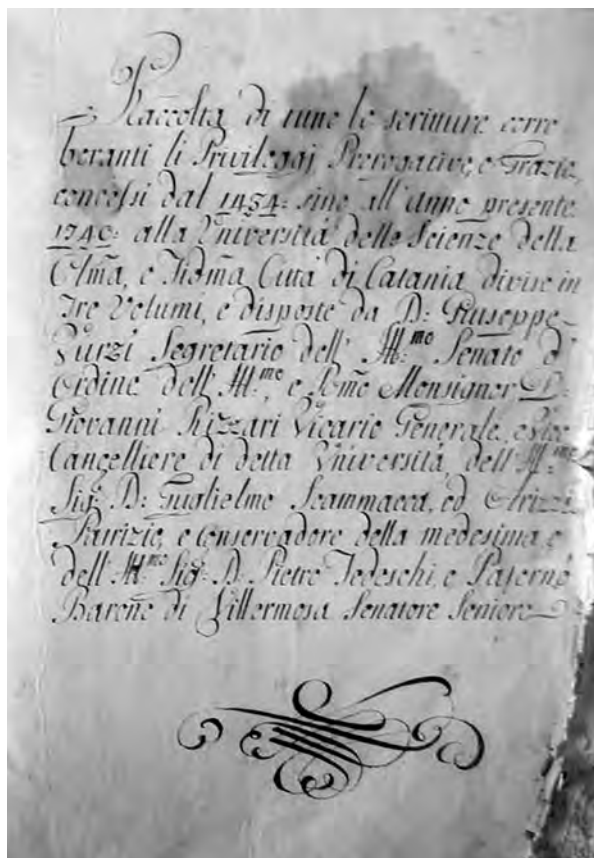 Raccolta di tutte le scritture corro
boranti li Privileggj, Prerogative, e Grazie,
concessi dal 1434: sino all'anno presente
1740: alla Università delle Scienze della
Clma, e Fidma Città di Catania divise in
Tre Volumi, e disposte da D: Giuseppe
Segretario dell' Illmo Senato d'
Ordine dell' Illmo, e Rmo Monsignor D:
Giovanni Rizzari Vicario Generale, e Vice
Cancelliere di detta Università, dell' Illmo
Sig: D: Guglielmo Scammacca, ed
Patrizio, e Conservadore della medesima, e
dell' Illmo Sig: D. Pietro Tedeschi, e Paternò
Barone di Villermosa Senatore Seniore